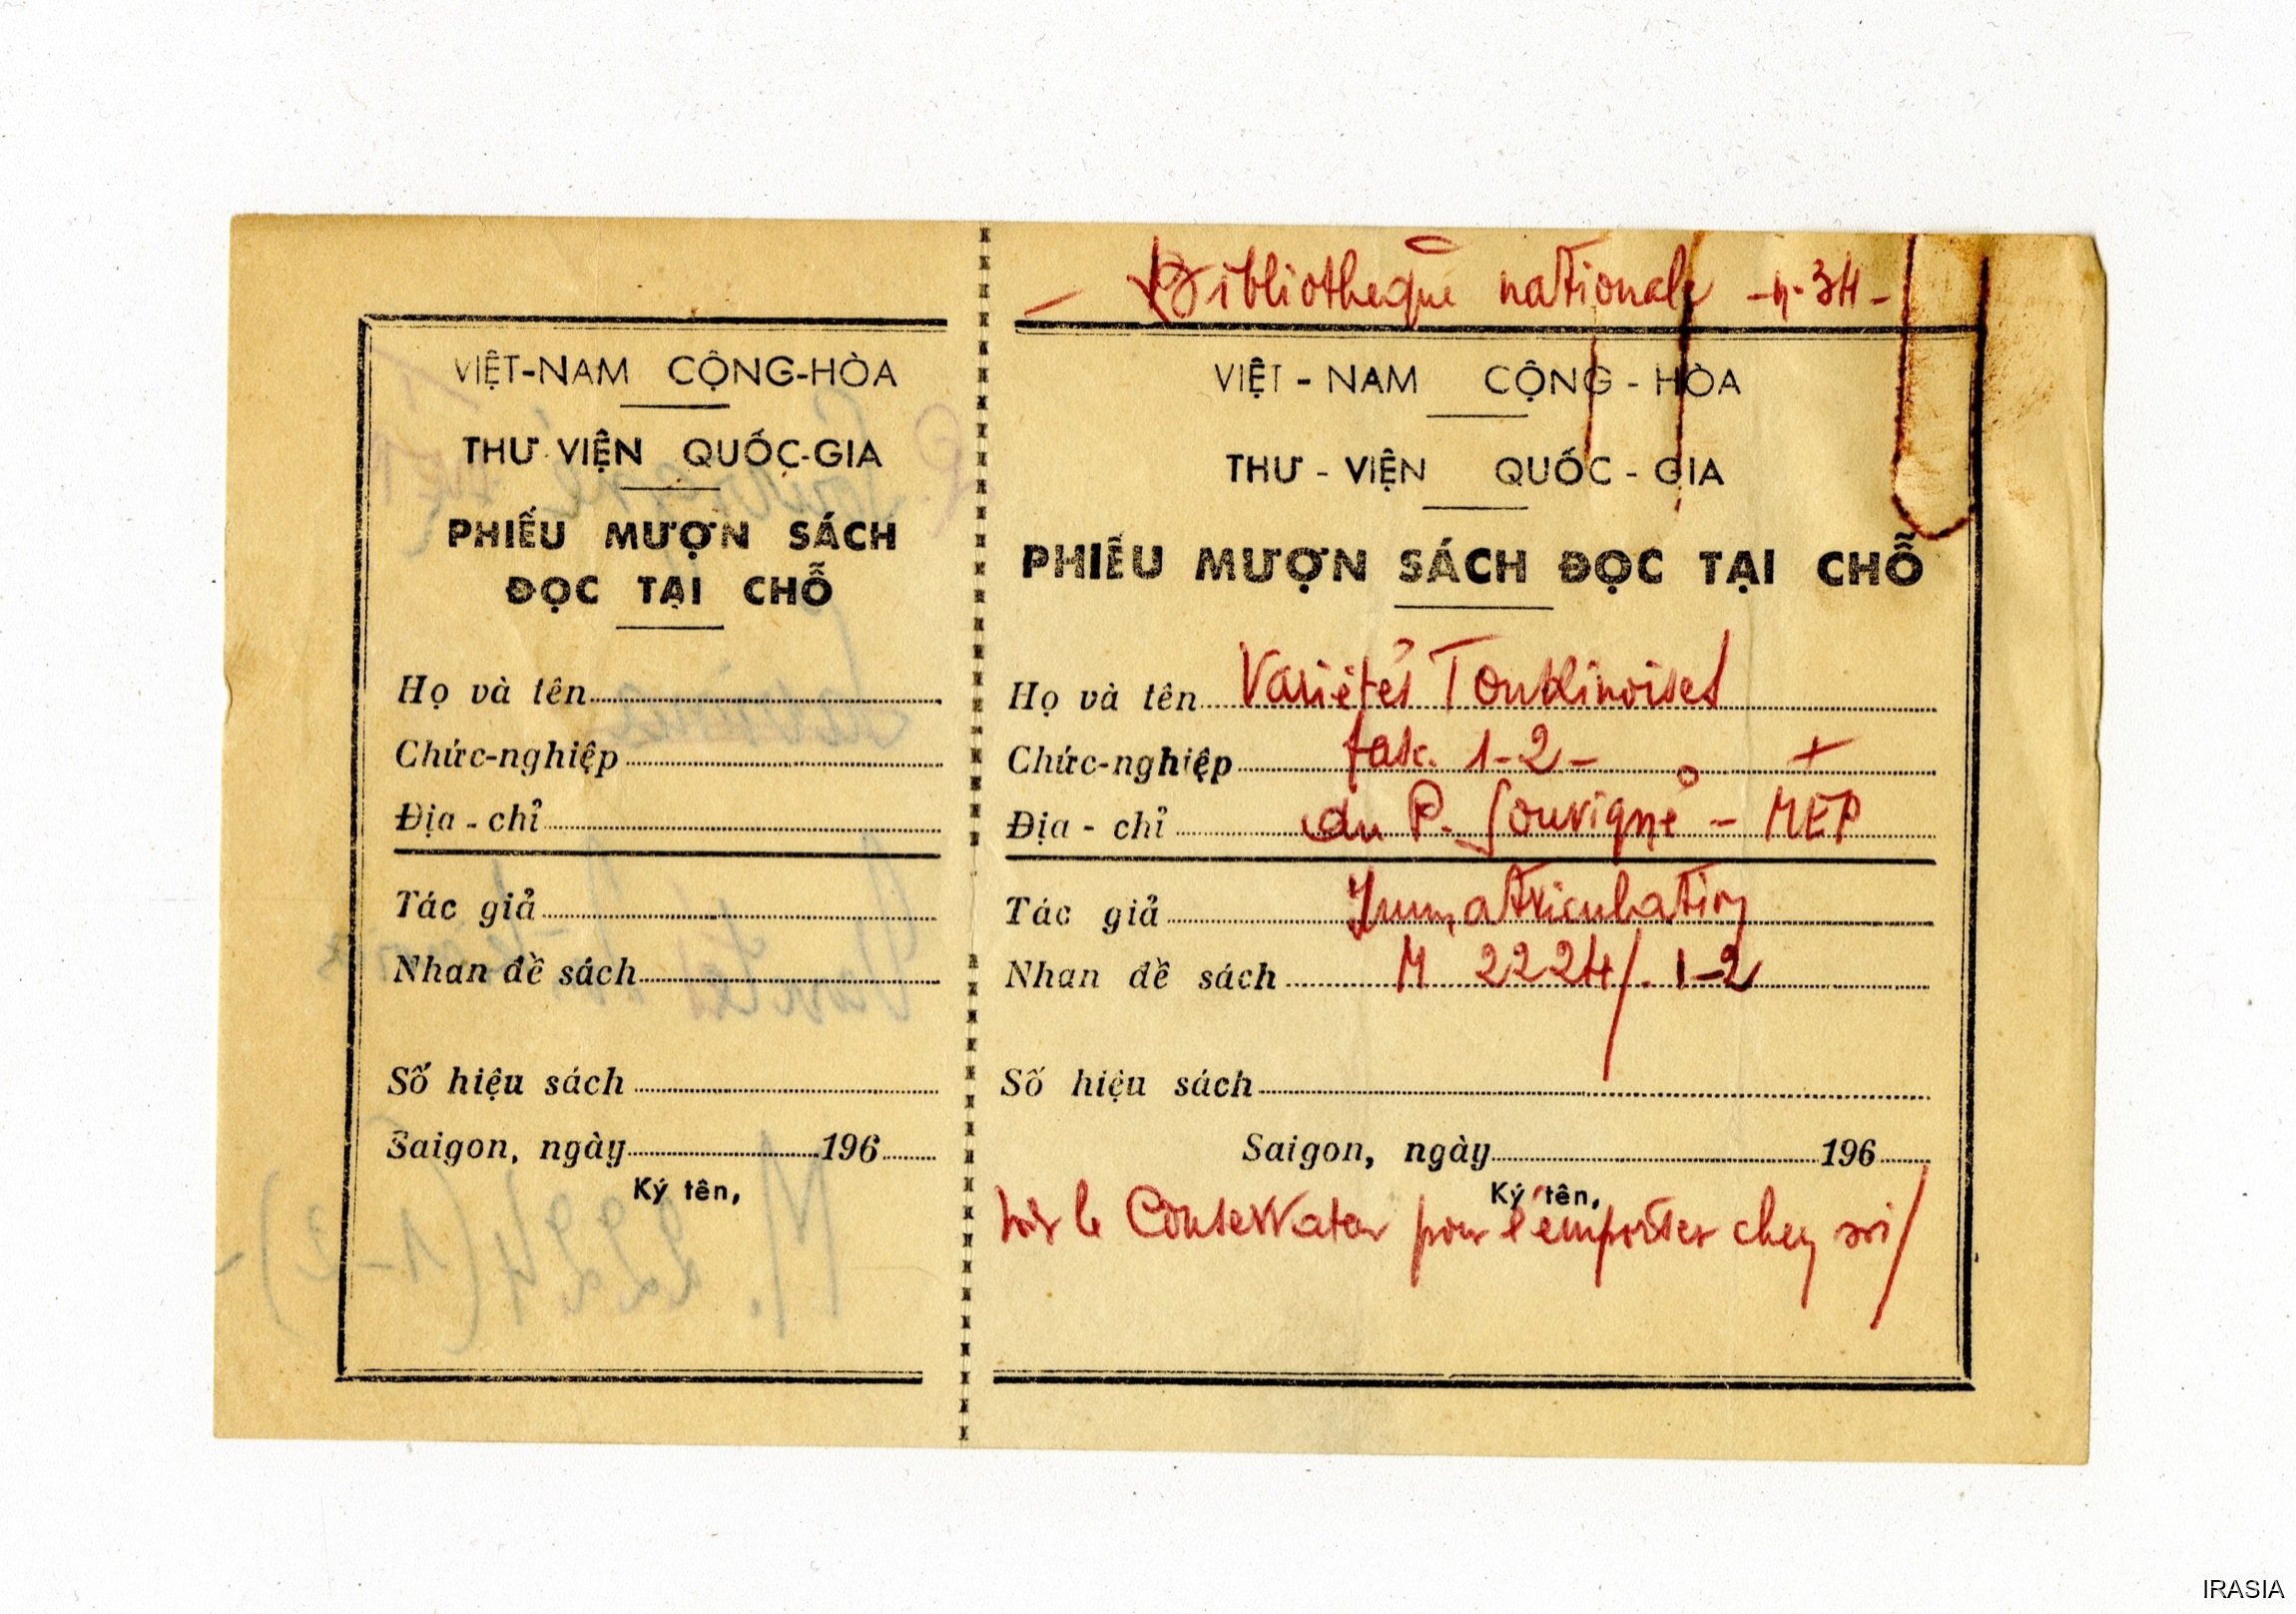 VIỆT-NAM CỘNG-HÒA
THƯ VIỆN QUỐC-GIA
PHIẾU MƯỢN SÁCH
ĐỌC TẠI CHỖ
Họ và tên
Chức-nghiệp
Địa - chỉ
Tác giả
Nhan đề sách
Số hiệu sách
Saigon, ngày 196
Ký tên,
- Bibliothèque nationale - 34 -
VIỆT - NAM CỘNG - HÒA
THƯ - VIỆN QUỐC - GIA
PHIẾU MƯỢN SÁCH ĐỌC TẠI CHỖ
Họ và tên Variétés Tonkinoises
Chức-nghiệp fasc. 1-2- +
Địa - chỉ du P. Souvigné - MEP
Tác giả Immatriculation
Nhan đề sách M 2224/. 1-2
Số hiệu sách
Saigon, ngày 196
Ký tên,
voir le Conservateur pour l'emporter chez soi/
IRASIA